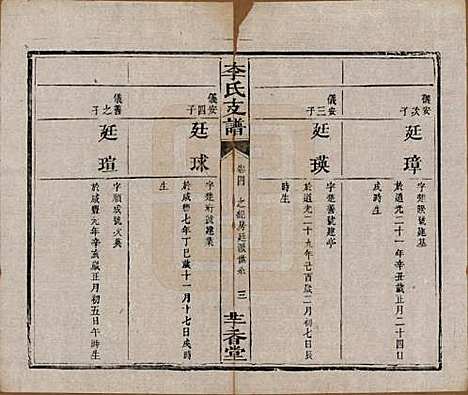 儀安次子
廷璋
字楚璇號建基
於道光二十一年辛丑歲正月二十四日
戌時生
儀安三子
廷瑛
字楚善號建亭
於道光二十九年己酉歲二月初七日長
時生
李氏支譜
卷四
三
廿香堂
儀安四子
廷球
字楚珩號建業
於咸豐七年丁巳歲十一月十七日戌時
生
儀善之子
廷瑄
字順成號大典
於咸豐元年辛亥歲正月初五日午時生